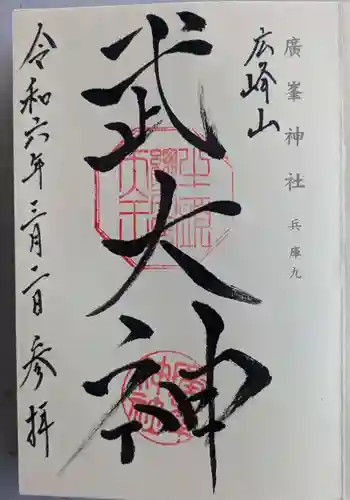 廣峯神社 兵庫九
広峰山
武大神
令和六年三月二日 参拝